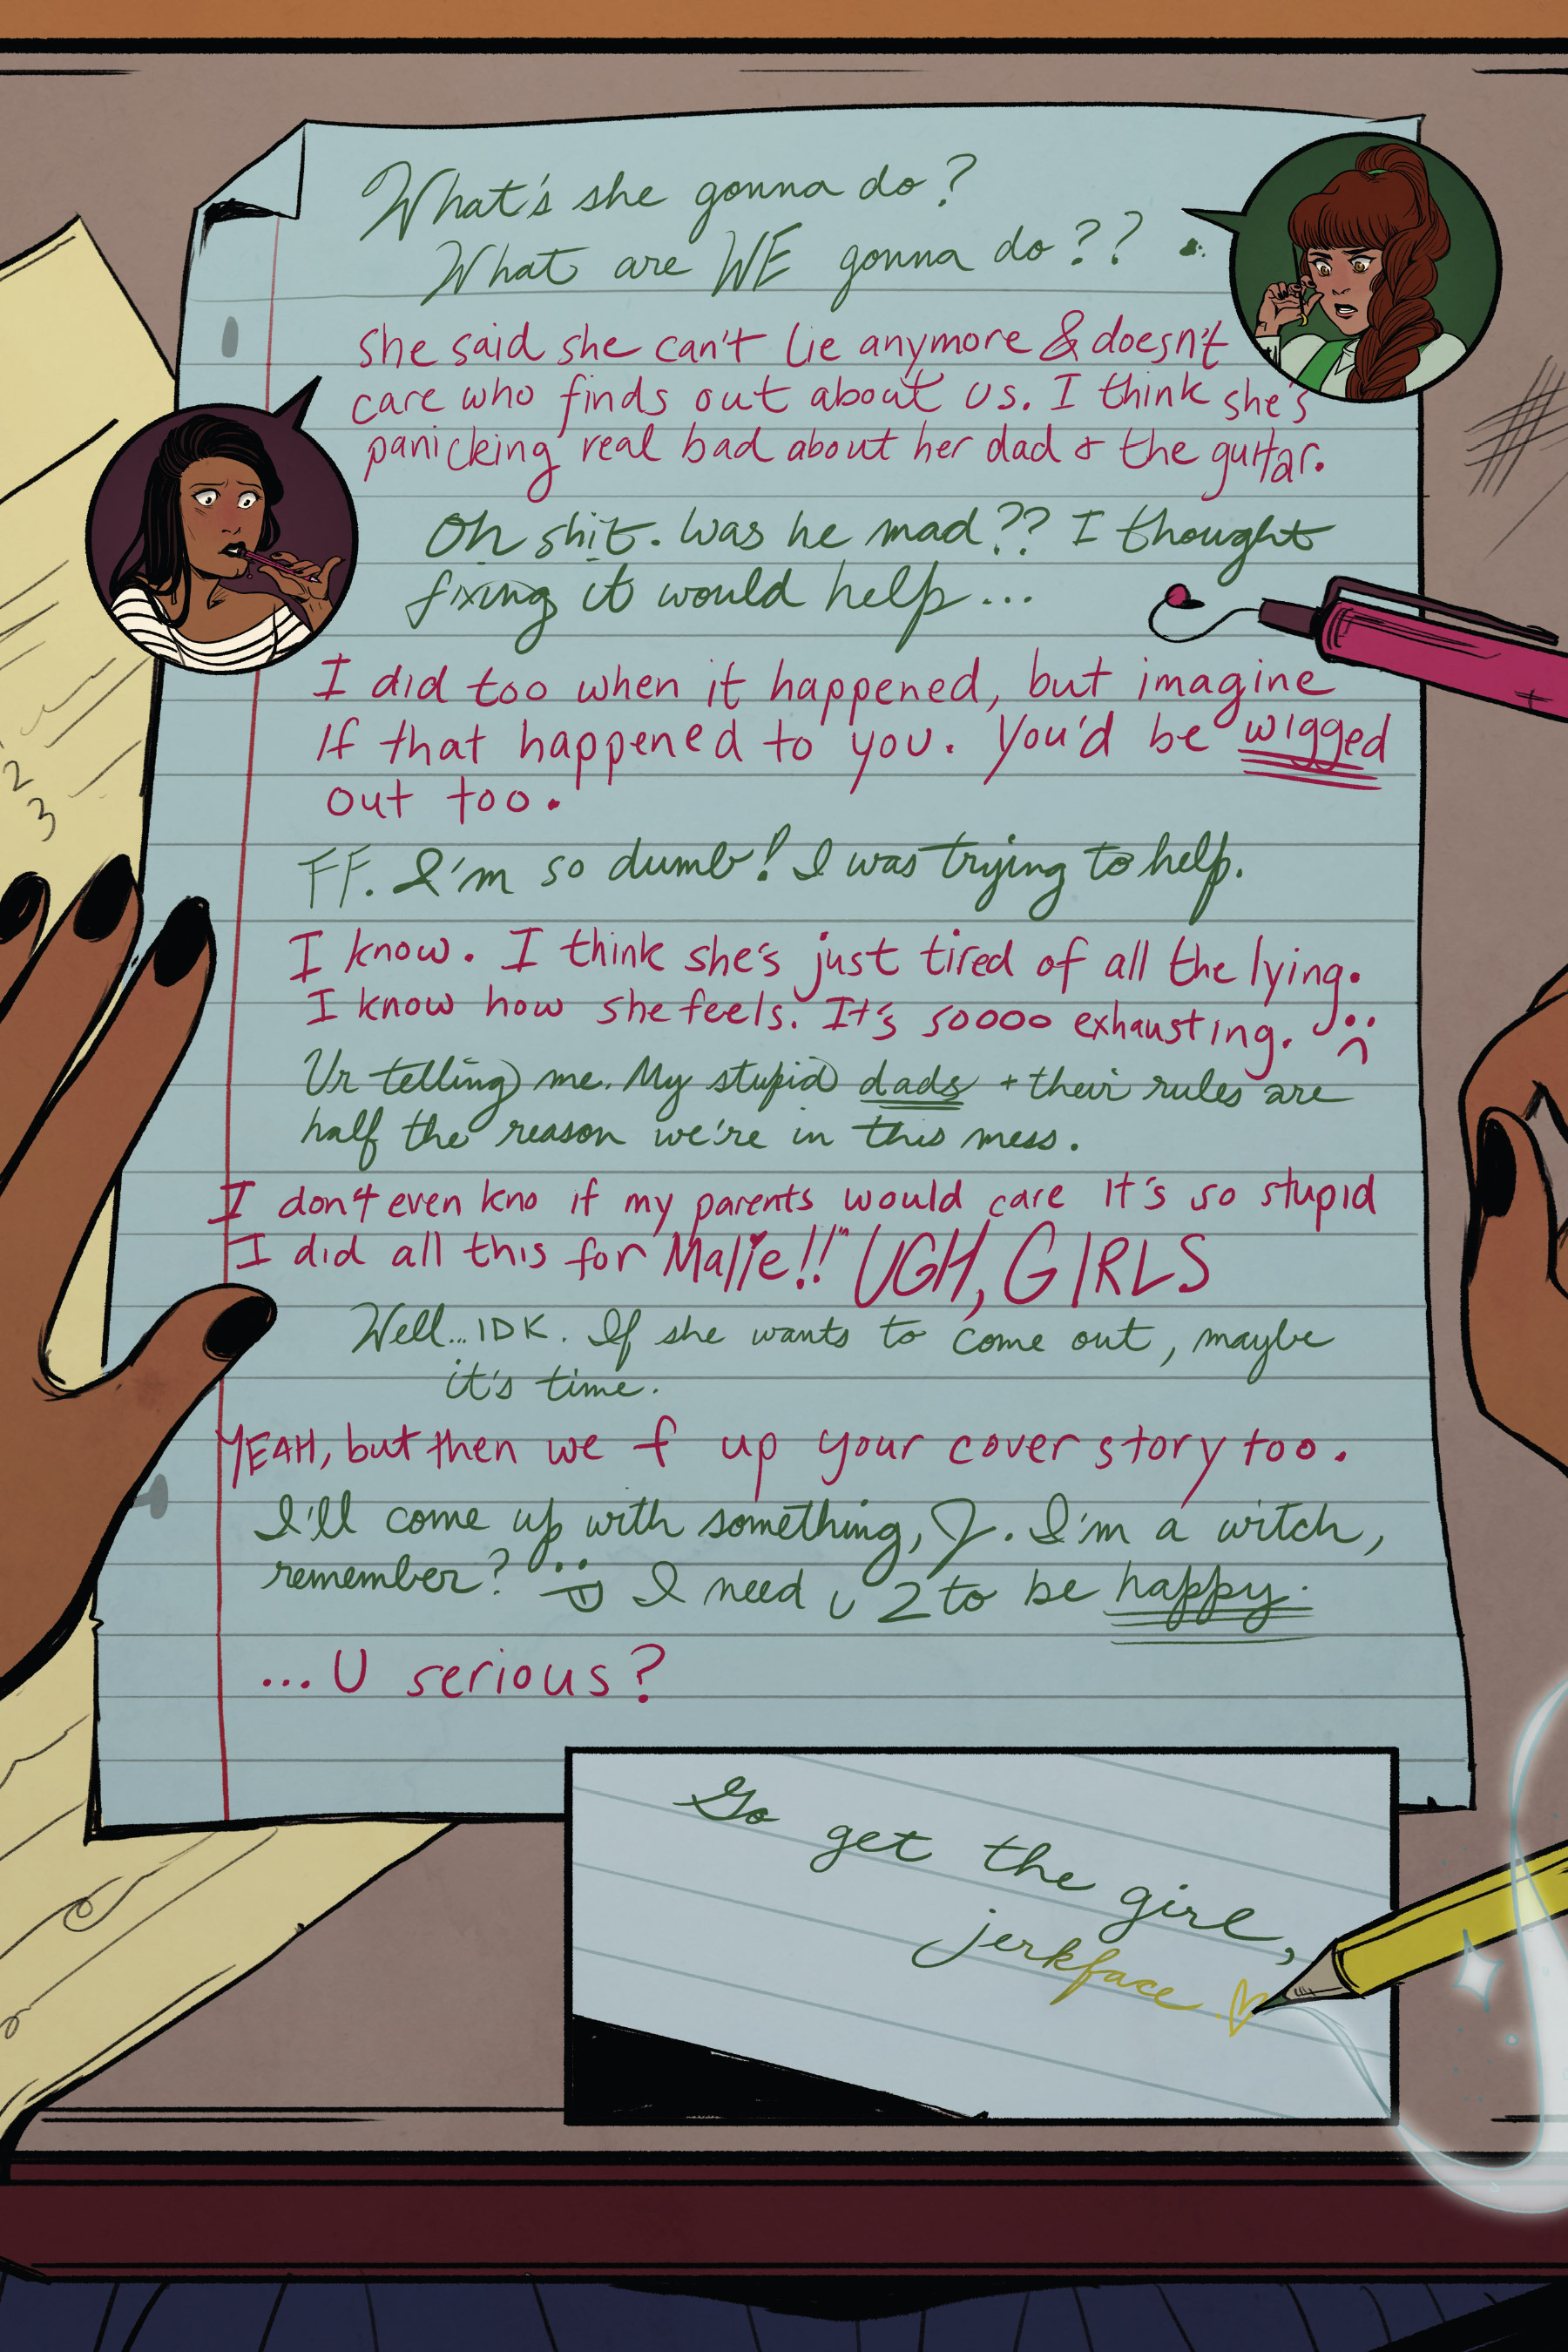 What's she gonna do?
What are WE gonna do??
She said she can't lie anymore & doesn't
care who finds out about us. I think she's
panicking real bad about her dad & the guitar.
Oh shit. Was he mad?? I thought
fixing it would help...
I did too when it happened, but imagine
If that happened to you. You'd be wigged
out too.
FF. I'm so dumb! I was trying to help.
I know. I think she's just tired of all the lying.
I know how she feels. It's soooo exhausting. :(
Ur telling me. My stupid dads + their rules are
half the reason we're in this mess.
I don't even kno if my parents would care It's so stupid
I did all this for Malie!! UGH, GIRLS
Well... IDK. If she wants to come out, maybe
it's time.
YEAH, but then we f up your cover story too.
I'll come up with something, J. I'm a witch,
remember? :P I need u 2 to be happy.
...U serious?
Go get the girl,
jerkface ♡
2
3